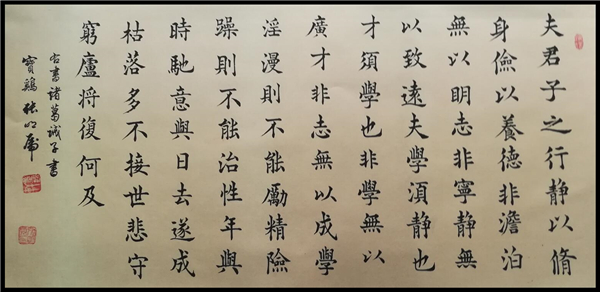 夫君子之行靜以脩
身儉以養德非澹泊
無以明志非寧靜無
以致遠夫學湏靜也
才須學也非學無以
廣才非志無以成學
淫漫則不能勵精險
躁則不能治性年與
時馳意與日去遂成
枯落多不接世悲守
窮廬將復何及
右書諸葛誡子書
寶鷄張